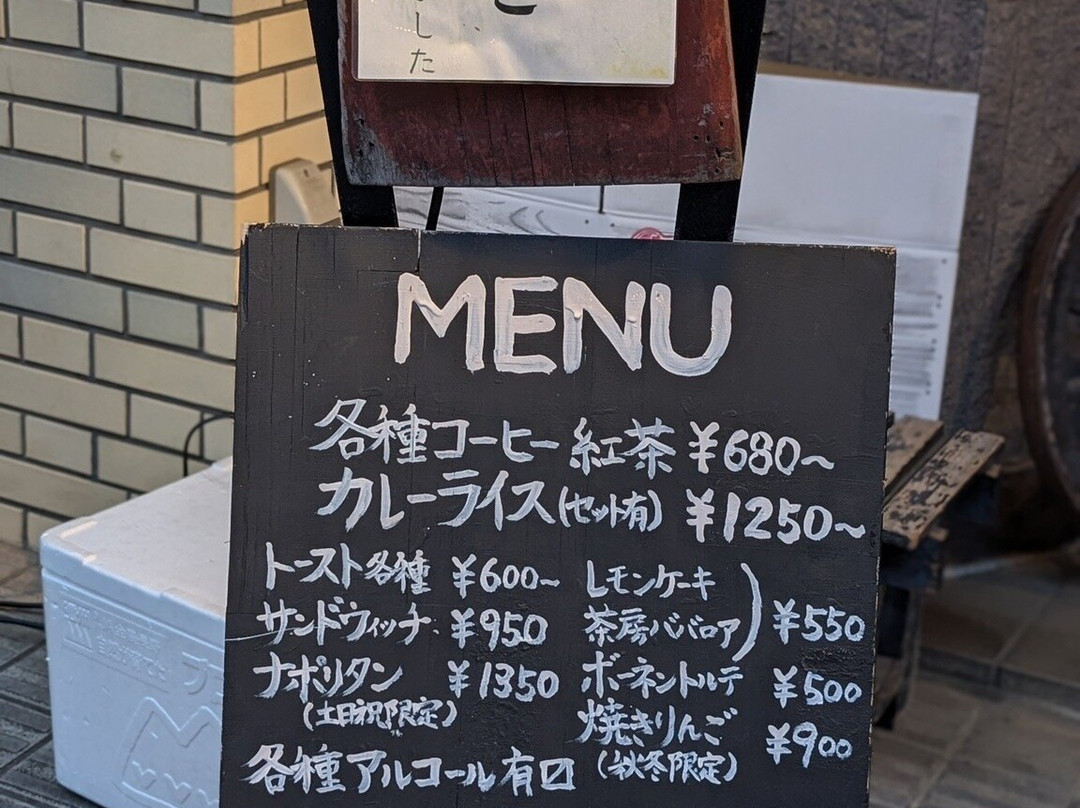 した
MENU
各種コーヒー 紅茶 ¥680~
カレーライス(セット有) ¥1250~
トースト各種 ¥600~
サンドウィッチ ¥950
ナポリタン ¥1350
(土日祝限定)
各種アルコール有〼
レモンケーキ
茶房ババロア ¥550
ボーネントルテ ¥500
焼きりんご ¥900
(秋冬限定)